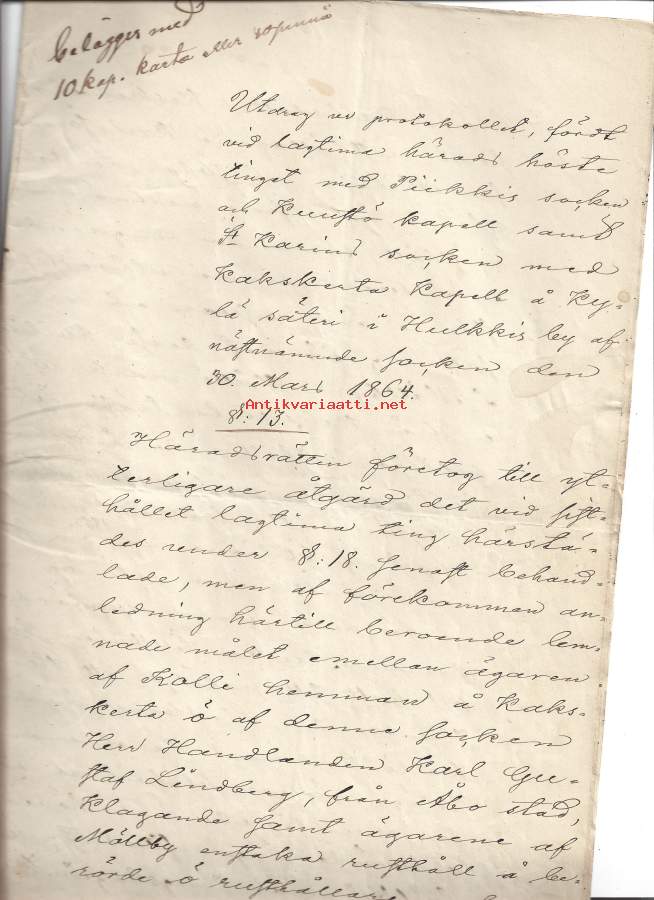 belägges med
10 kop. karta eller 40 penniä
Utdrag ur protokollet, fördt
vid lagtima härads höste
tinget med Piikkis socken
och Kuustö kapell samt
St Karins socken med
Kakskerta Kapell å Ky-
lä säteri i Hulkkis by af
nästnämnde socken den
30. Mars 1864.
Antikvariaatti.net
§: 13.
Häradsrätten företog till yt-
terligare åtgärd det vid sist-
hållet lagtima ting härstä-
des under §: 18. senast behand-
lade, men af förekommen an-
ledning härtill beroende lem-
nade målet emellan ägaren
af Kolli hemman å Kaks-
kerta ö af denne socken
Herr Handlanden Karl Gu-
staf Lindberg, från Åbo stad,
Klagande samt ägarene af
Möllby enstaka rusthåll å be-
rörde ö